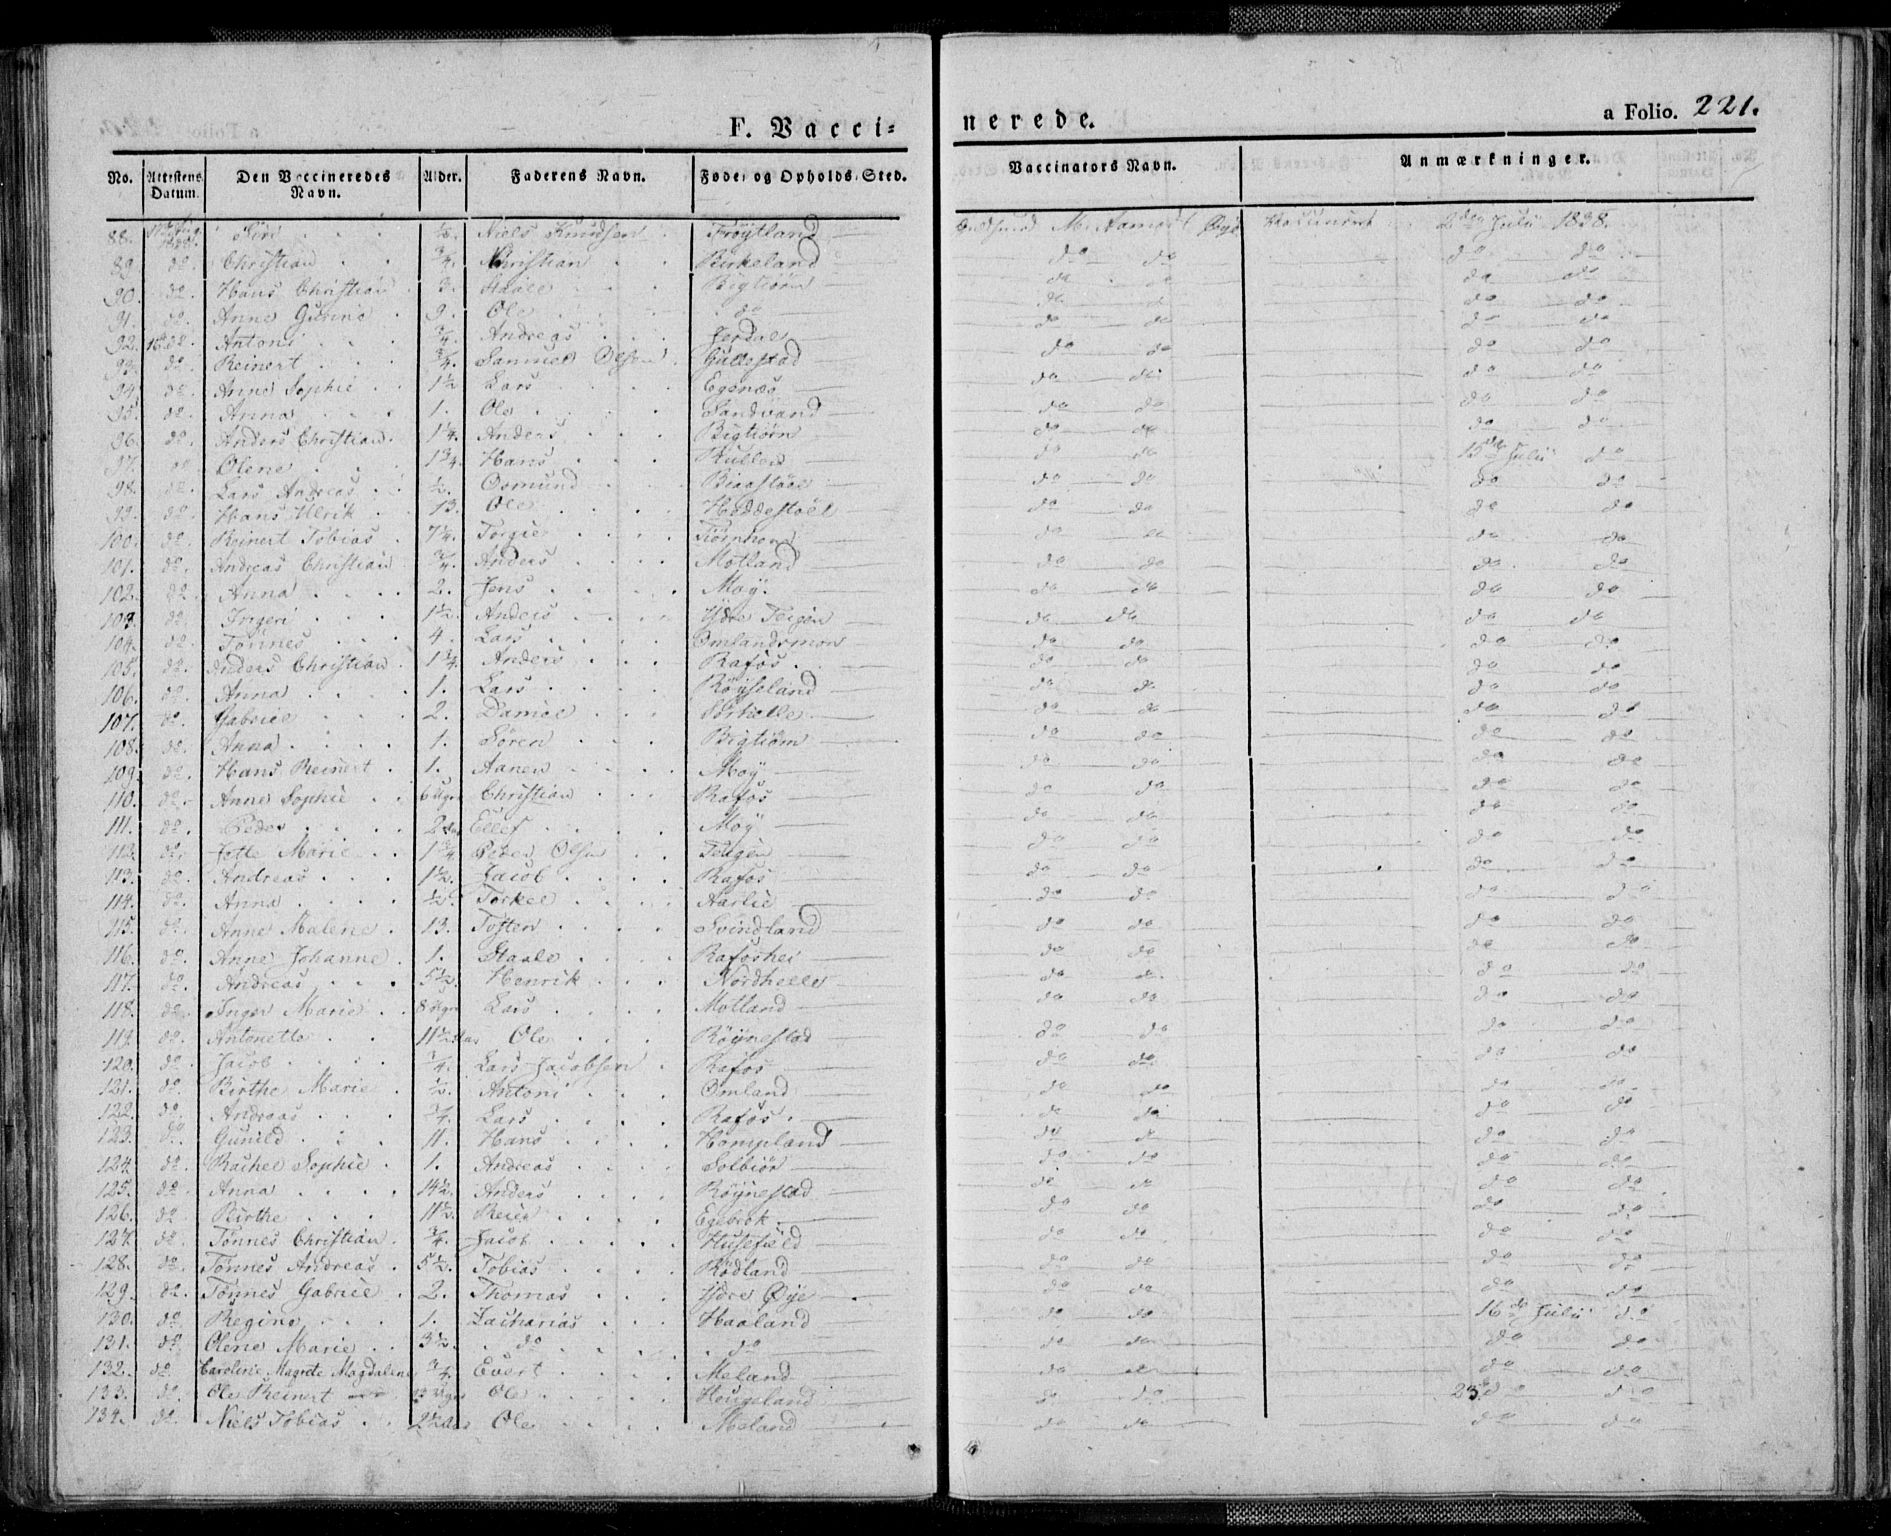 F. Vacci=
nerede.
a Folio. 221.
No. | Attestens Datum. | Den Vaccineredes Navn. | Alder. | Faderens Navn. | Føde- og Opholds-Sted. | Vaccinators Navn. | Anmærkninger.
88. | Siri | ½. | Niels Knudsen | Frøytland | M. Aamodt Øye | Vaccineret 2den Julii 1838.
89. | do. | Christian | ¾. | Christian | Birkeland | do do | do do
90. | do. | Hans Christian | Staale | Bigtiörn | do do | do do
91. | do. | Anne Gurine | 9. | Ole | do | do do | do do
92. | 16 do. | Antoni | ¾. | Andreas | Jerdal | do do | do do
93. | do. | Reinert | ¾. | Samuel Olsen | Gullestad | do do | do do
94. | do. | Anne Sophie | 1½ | Lars | Egenæs | do do | do do
95. | do. | Anna | 1. | Ole | Sandvand | do do | do do
96. | do. | Anders Christian | 1¼. | Anders | Bigtiörn | do do | do do
97. | do. | Olene | 1¾. | Hans | do do | 15de Julii do
98. | do. | Lars Andreas | ½. | Osmund | do do | do do
99. | do. | Hans Ulrik | 13. | Ole | Heddestøel | do do | do do
100. | do. | Reinert Tobias | 7¼. | Torgier | do do | do do
101. | do. | Andreas Christian | ¾. | Anders | Motland | do do | do do
102. | do. | Anna | 2. | Jens | Moy. | do do | do do
103. | do. | Ingeri | 1½. | Anders | Ydre Teigen | do do | do do
104. | do. | Tønnes | 4. | Lars | Omlandsmon | do do | do do
105. | do. | Anders Christian | 1¾. | Anders | Rafos. | do do | do do
106. | do. | Anna | 1. | Lars | Røyseland | do do | do do
107. | do. | Gabriel | 2. | Daniel | Sörhelle. | do do | do do
108. | do. | Anna | 1. | Sören | Bigtiörn | do do | do do
109. | do. | Hans Reinert | 1. | Aanen | Moy | do do | do do
110. | do. | Anne Sophie | 6 Ugr | Christian | Rafos | do do | do do
111. | do. | Peder | 2 | Ellef | Moy | do do | do do
112. | do. | Jette Marie | 1¾ | Peder Olsen | Teigen | do do | do do
113. | do. | Andreas | 1½. | Jacob | Rafos | do do | do do
114. | do. | Anna | ½. | Torkel | Aarlie | do do | do do
115. | do. | Anne Malene | 13. | Tosten | Svindland | do do | do do
116. | do. | Anne Johanne | 1. | Staale | Rafoshei | do do | do do
117. | do. | Andreas | 5½. | Henrik | Nordhelle | do do | do do
118. | do. | Inger Marie | 8 Ugr | Lars | Motland | do do | do do
119. | do. | Antonette | 11½ Aar | Ole | Röynestad | do do | do do
120. | do. | Jacob | ¼. | Lars Jacobsen | Rafos | do do | do do
121. | do. | Birthe Marie | ½. | Antoni | Omland | do do | do do
122. | do. | Andreas | ¾. | Lars | Rafos. | do do | do do
123. | do. | Gunild | 11. | Hans | Hompland | do do | do do
124. | do. | Rachel Sophie | 1. | Andreas | Solbiör | do do | do do
125. | do. | Anna | 14½. | Anders | Röynestad | do do | do do
126. | do. | Birthe | 11½. | Reier | Egebrok. | do do | do do
127. | do. | Tönnes Christian | ¾. | Jacob | Husefield | do do | do do
128. | do. | Tønnes Andreas | 5½. | Tobias | Rödland | do do | do do
129. | do. | Tønnes Gabriel | 2. | Thomas | Ydre Øye | do do | do do
130. | do. | Regine | 1. | Zacharias | Haaland | do do | 16de Julii do
131. | do. | Olene Marie | 3½. | do | do | do do | do do
132. | do. | Caroline Magrete Magdalene | ¾. | Evert | Meland | do do | do do
133. | do. | Ole Reinert | 13 Ugr | Ole | Heugeland | do do | 23 do do
134. | do. | Niels Tobias | 2½ Aar | Ole | Meland | do do | do do